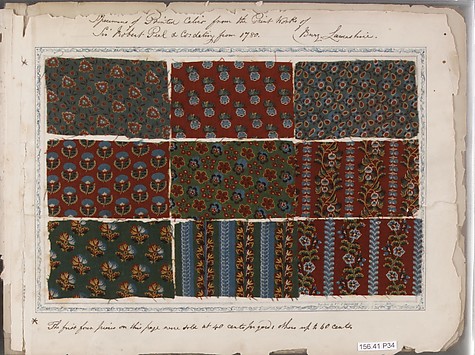 Specimens of Printed Calico from the Print Works of
Sir Robert Peel & Co dating from 1780. Bury Lancashire.
* The first four pieces on this page were sold at 40 cents per yard & others up to 60 cents
156.41 P34